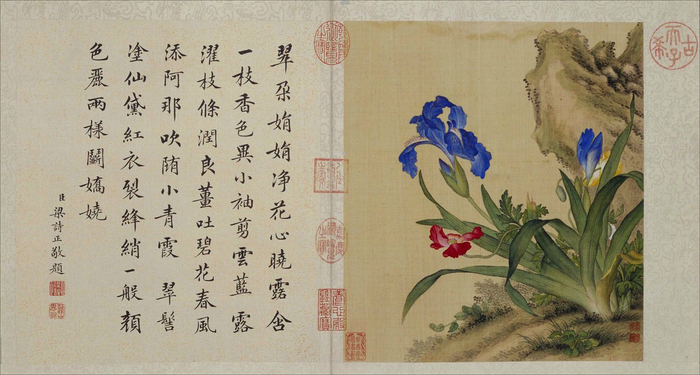 翠朶娟娟净花心曉露含
一枝香色異小袖剪雲藍 露
濯枝條潤良薑吐碧花春風
添阿那吹随小青霞 翠髻
塗仙黛紅衣裂絳綃一般顏
色麗兩樣鬭嬌嬈
臣梁詩正敬題
古希天子